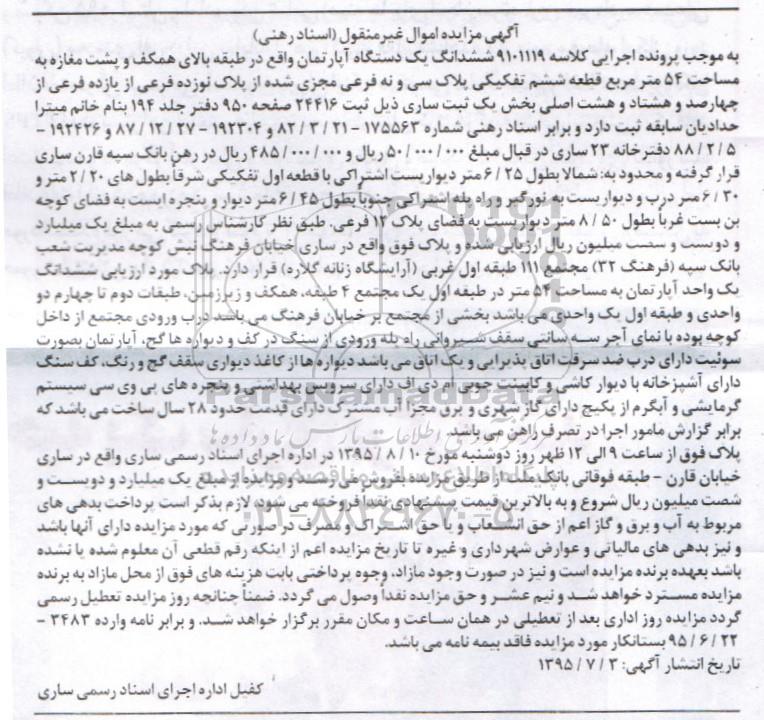 آگهی مزایده اموال غیرمنقول (اسناد رهنی)
به موجب پرونده اجرایی کلاسه ۹۱۰۱۱۱۹ ششدانگ یک دستگاه آپارتمان واقع در طبقه بالای همکف و پشت مغازه به
مساحت ۵۴ متر مربع قطعه ششم تفکیکی پلاک سی و نه فرعی مجزی شده از پلاک نوزده فرعی از یازده فرعی از
چهارصد و هشتاد و هشت اصلی بخش یک ثبت ساری ذیل ثبت ۲۴۴۱۶ صفحه ۹۵۰ دفتر جلد ۱۹۴ بنام خانم میترا
حدادیان سابقه ثبت دارد و برابر اسناد رهنی شماره ۱۷۵۵۶۳ – ۲۱ / ۳ / ۸۲ و ۱۹۲۳۰۴ – ۲۷ / ۱۲ / ۸۷ و ۱۹۲۴۲۶ –
۵ / ۲ / ۸۸ دفترخانه ۲۳ ساری در قبال مبلغ ۰۰۰ / ۰۰۰ / ۵۰ ریال و ۰۰۰ / ۰۰۰ / ۴۸۵ ریال در رهن بانک سپه قارن ساری
قرار گرفته و محدود به: شمالا بطول ۲۵ / ۶ متر دیواریست اشتراکی با قطعه اول تفکیکی شرقاً بطول های ۲۰ / ۲ متر و
۳۰ / ۶ متر درب و دیوار یست به نورگیر و راه پله اشتراکی جنوباً بطول ۴۵ / ۶ متر دیوار و پنجره ایست به فضای کوچه
بن بست غرباً بطول ۵۰ / ۸ متر دیواریست به فضای پلاک ۱۲ فرعی. طبق نظر کارشناس رسمی به مبلغ یک میلیارد
و دویست و شصت میلیون ریال ارزیابی شده و پلاک فوق واقع در ساری خیابان فرهنگ نبش کوچه مدیریت شعب
بانک سپه (فرهنگ ۳۲) مجتمع ۱۱۱ طبقه اول غربی (آرایشگاه زنانه گلاره) قرار دارد. پلاک مورد ارزیابی ششدانگ
یک واحد آپارتمان به مساحت ۵۴ متر در طبقه اول یک مجتمع ۴ طبقه، همکف و زیرزمین، طبقات دوم تا چهارم دو
واحدی و طبقه اول یک واحدی می باشد بخشی از مجتمع بر خیابان فرهنگ می باشد درب ورودی مجتمع از داخل
کوچه بوده با نمای آجر سه سانتی سقف شیروانی راه پله ورودی از سنگ در کف و دیواره ها گچ، آپارتمان بصورت
سوئیت دارای درب ضد سرقت اتاق پذیرایی و یک اتاق می باشد دیواره ها از کاغذ دیواری سقف گچ و رنگ، کف سنگ
دارای آشپزخانه با دیوار کاشی و کابینت چوبی ام دی اف دارای سرویس بهداشتی و پنجره های پی وی سی سیستم
گرمایشی و آبگرم از پکیج دارای گاز شهری و برق مجزا آب مشترک دارای قدمت حدود ۲۸ سال ساخت می باشد که
برابر گزارش مامور اجرا در تصرف راهن می باشد.
پلاک فوق از ساعت ۹ الی ۱۲ ظهر روز دوشنبه مورخ ۱۰ / ۸ / ۱۳۹۵ در اداره اجرای اسناد رسمی ساری واقع در ساری
خیابان قارن – طبقه فوقانی بانک ملت از طریق مزایده بفروش می رسد و مزایده از مبلغ یک میلیارد و دویست و
شصت میلیون ریال شروع و به بالاترین قیمت پیشنهادی نقداً فروخته می شود. لازم بذکر است پرداخت بدهی های
مربوط به آب و برق و گاز اعم از حق انشعاب و یا حق اشتراک و مصرف در صورتی که مورد مزایده دارای آنها باشد
و نیز بدهی های مالیاتی و عوارض شهرداری و غیره تا تاریخ مزایده اعم از اینکه رقم قطعی آن معلوم شده یا نشده
باشد بعهده برنده مزایده است و نیز در صورت وجود مازاد، وجوه پرداختی بابت هزینه های فوق از محل مازاد به برنده
مزایده مسترد خواهد شد و نیم عشر و حق مزایده نقداً وصول می گردد. ضمناً چنانچه روز مزایده تعطیل رسمی
گردد مزایده روز اداری بعد از تعطیلی در همان ساعت و مکان مقرر برگزار خواهد شد. و برابر نامه وارده ۳۴۸۳ –
۲۲ / ۶ / ۹۵ بستانکار مورد مزایده فاقد بیمه نامه می باشد.
تاریخ انتشار آگهی: ۳ / ۷ / ۱۳۹۵
کفیل اداره اجرای اسناد رسمی ساری
ParsNamadData
۰۲۱-۸۸۳۴۹۶۷۰-۵